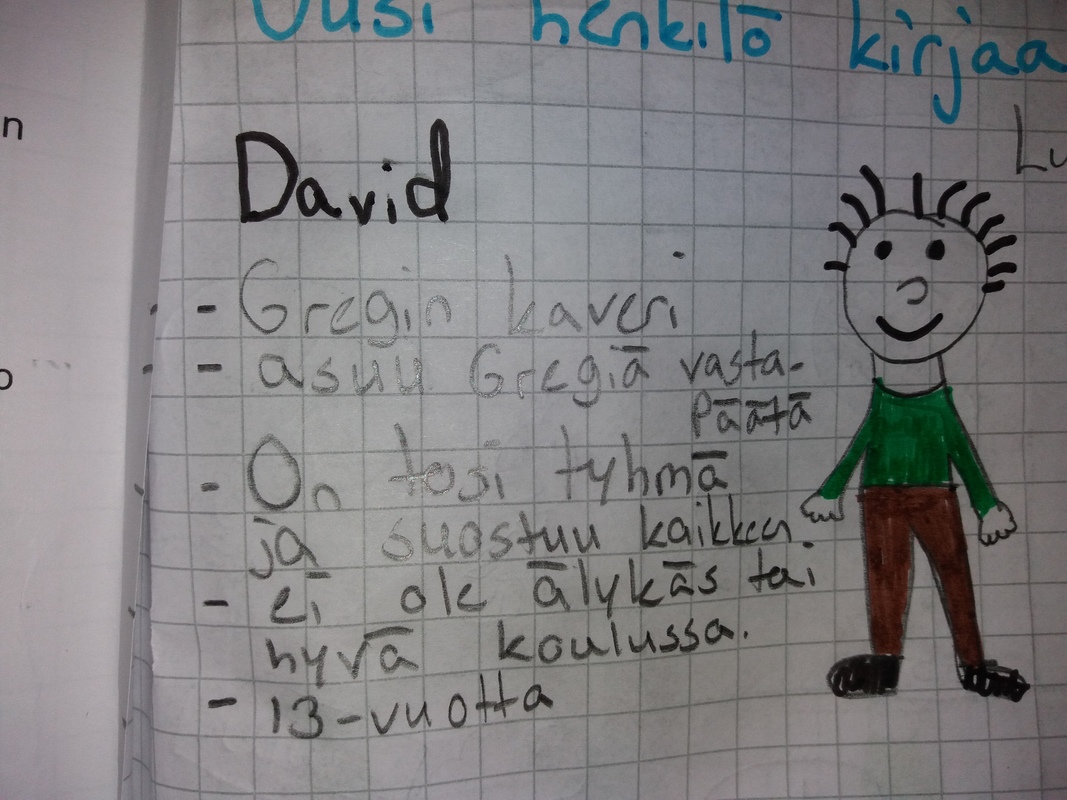 Uusi henkilö kirjaa
n
Lu
David
- Gregin kaveri
- asuu Gregiä vasta-
päätä
- On tosi tyhmä
ja suostuu kaikkeen
- ei ole älykäs tai
hyvä koulussa.
- 13-vuotta